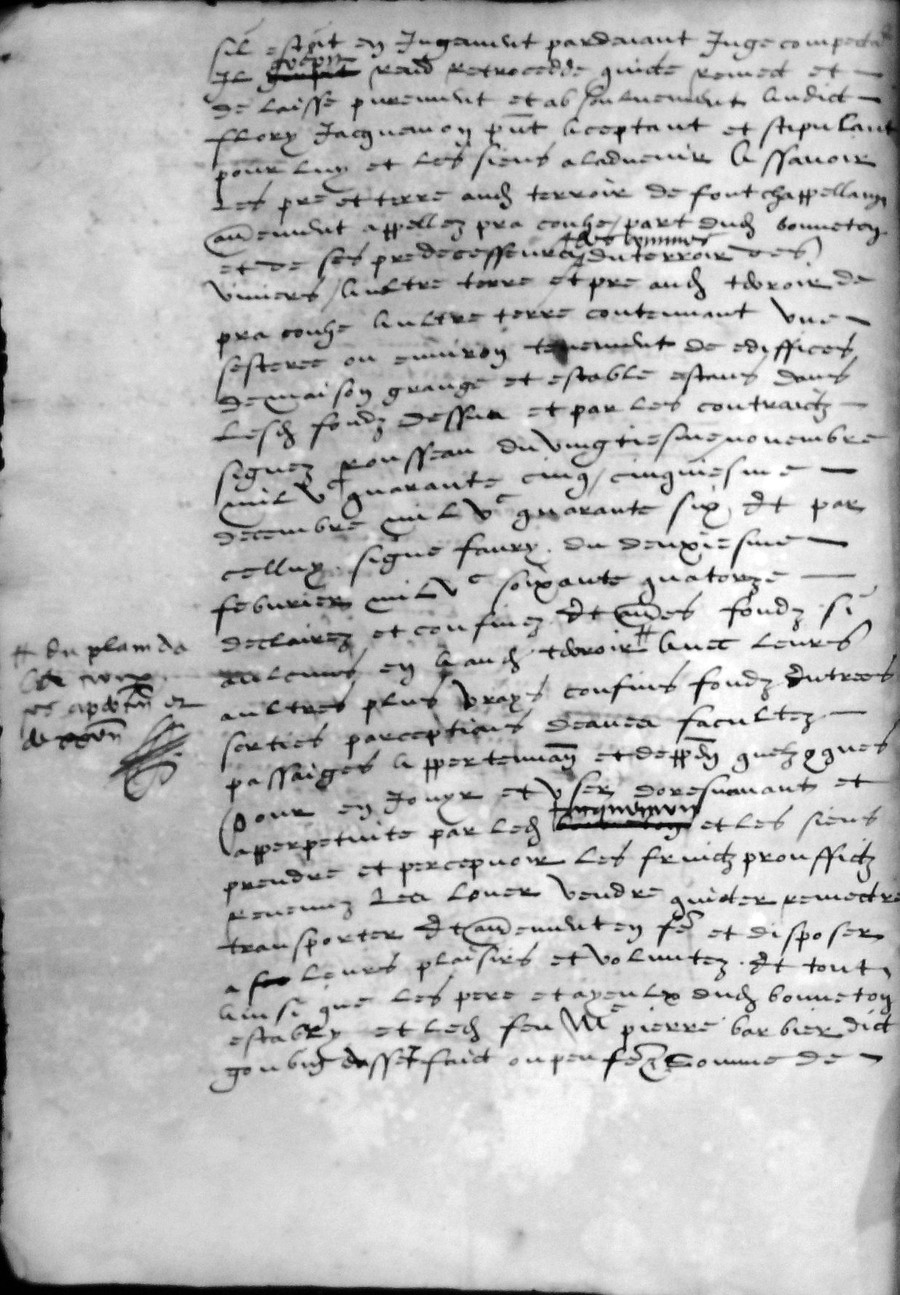 sil estoit en Jugement pardevant Juge compecta
Il guerpit rend retrocedde quicte remect et
de laisse purement et absoluement audict
flory Jacquemon pnt aceptant et stipulant
pour luy et les siens a ladvenir A scavoir
Les pre et terre aud terroir de font chappellany
aultrement appellez pra couhe, part dud bonneton
et de ses predecesseurs du terroir des
viniers, aultre terre et pre aud terroir de
pra couhe aultre terre contenant une
sesteree ou environ tenement de ediffices
de maison grange et estable estans dans
Lesd fondz dessus et par les contraictz
signez rousseau du vingtiesme novembre
mil vc quarante cinq, cinquiesme
decembre mil vc quarante six, Et par
celluy signe faury du deuxiesme
febvrier mil vc soixante quatorze
declairez et confinez Et aultres fondz si
aulcuns en a aud terroir # avec leurs
aultres plus vrays confins fondz Entrees
sorties perceptions deaues facultez
passaiges appertenan et deppen quelzques
Pour en Jouyr et user doresnavant et
a perpetuite par led Jacquemon et les siens
prendre et percepvoir les fruictz prouffictz
revenuz Les louer vendre quicter remectre
transporter Et aultrement en fe et disposer
a leurs plaisirs et voluntez. Et tout
ainsi que les pere et ayeulx dud bonneton
estably et led feu Me pierre barbier dict
goubin faict ou peu fe Somme de
# du plain da